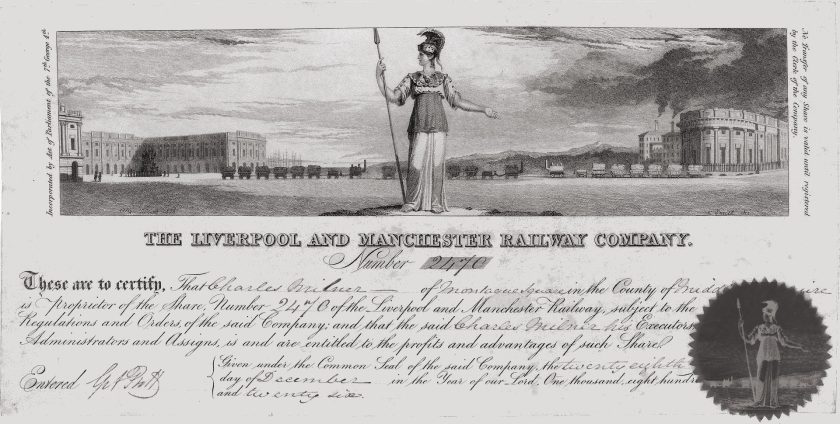 Incorporated by Act of Parliament of the 7th George 4th.
No Transfer of any Share is valid until registered
by the Clerk of the Company.
THE LIVERPOOL AND MANCHESTER RAILWAY COMPANY.
Number 2470
These are to certify, That Charles Milner of Montague Square in the County of
is Proprietor of the Share, Number 2470 of the Liverpool and Manchester Railway, subject to the
Regulations and Orders, of the said Company; and that the said Charles Milner his Executors
Administrators and Assigns, is and are entitled to the profits and advantages of such Share
Given under the Common Seal of the said Company, the twenty eighth
Entered
day of December in the Year of our Lord, One thousand, eight hundre
and twenty six.